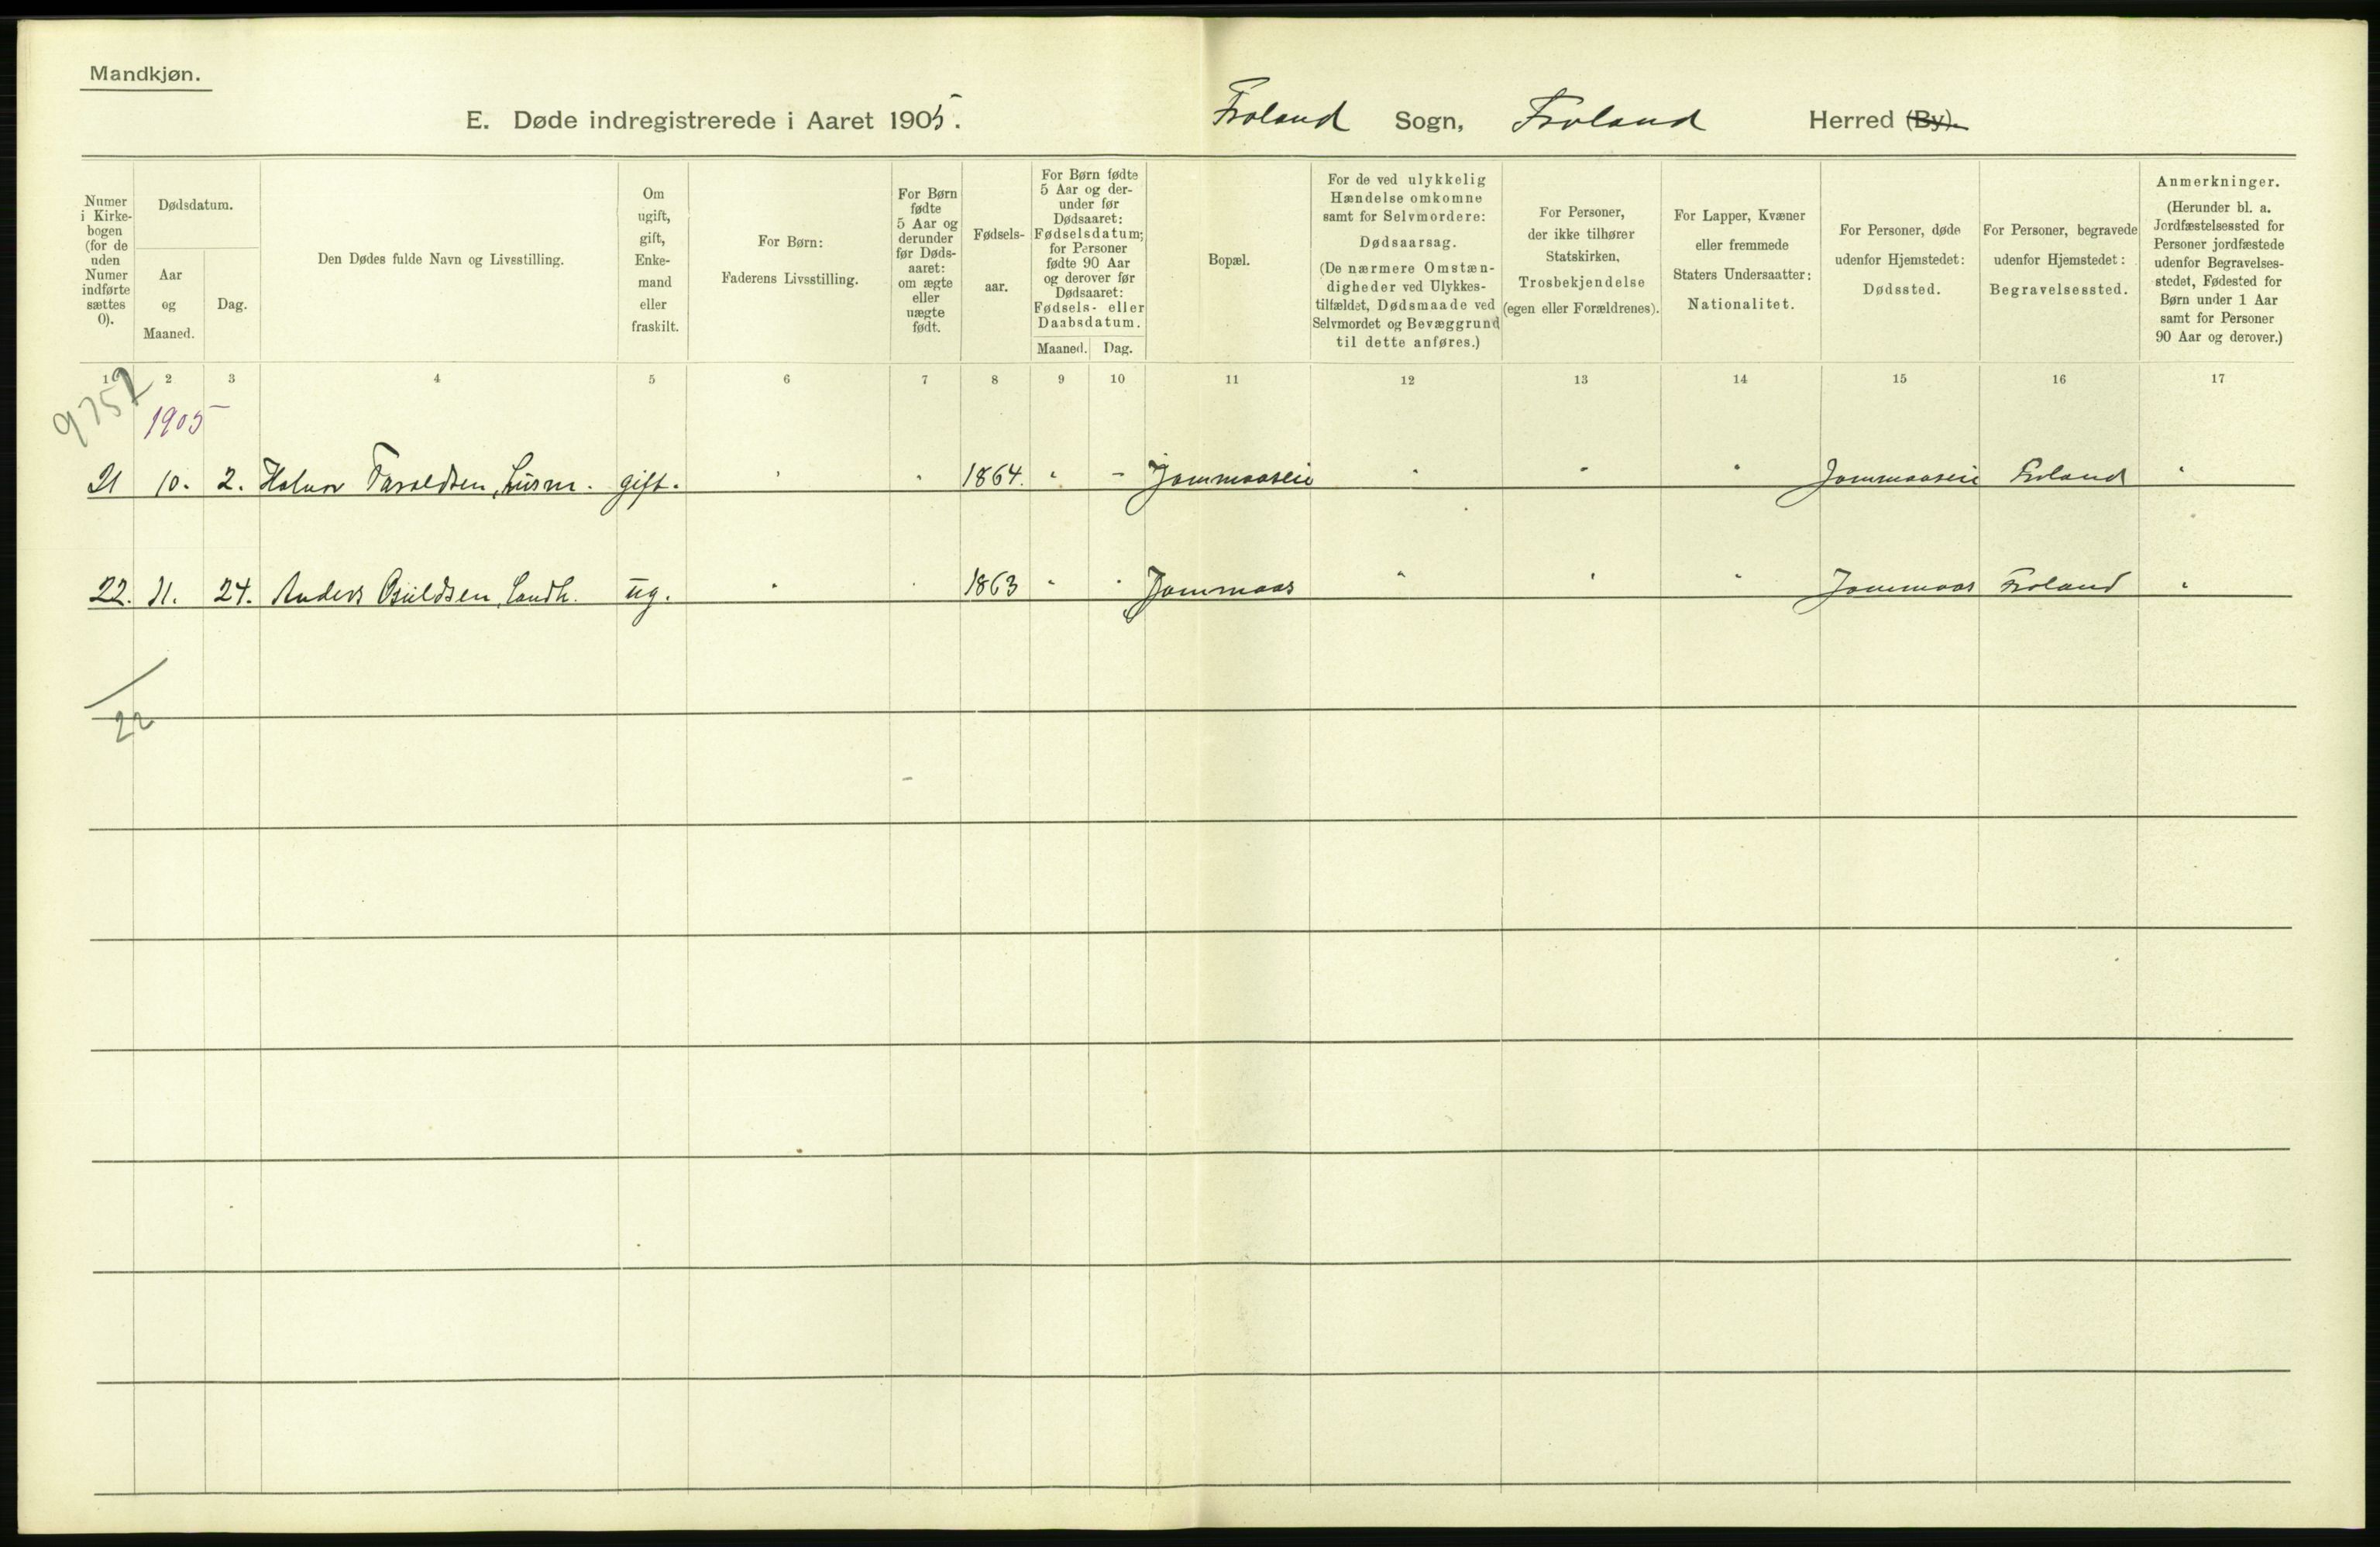 Mandkjøn.
E. Døde indregistrerede i Aaret 1905. Froland Sogn, Froland Herred (By).
Numer i Kirkebogen (for de uden Numer indførte sættes 0).
Dødsdatum.
Aar og Maaned.
Dag.
Den Dødes fulde Navn og Livsstilling.
Om ugift, gift, Enkemand eller fraskilt.
For Børn:
Faderens Livsstilling.
For Børn fødte 5 Aar og derunder før Dødsaaret: om ægte eller uægte født.
Fødselsaar.
For Børn fødte 5 Aar og derunder før Dødsaaret: Fødselsdatum; for Personer fødte 90 Aar og derover før Dødsaaret: Fødsels- eller Daabsdatum.
Maaned. Dag.
Bopæl.
For de ved ulykkelig Hændelse omkomne samt for Selvmordere:
Dødsaarsag.
(De nærmere Omstændigheder ved Ulykkestilfældet, Dødsmaade ved Selvmordet og Bevæggrund til dette anføres.)
For Personer, der ikke tilhører Statskirken,
Trosbekjendelse
(egen eller Forældrenes).
For Lapper, Kvæner eller fremmede Staters Undersaatter:
Nationalitet.
For Personer, døde udenfor Hjemstedet:
Dødssted.
For Personer, begravede udenfor Hjemstedet:
Begravelsessted.
Anmerkninger.
(Herunder bl. a. Jordfæstelsessted for Personer jordfæstede udenfor Begravelsesstedet, Fødested for Børn under 1 Aar samt for Personer 90 Aar og derover.)
1 2 3 4 5 6 7 8 9 10 11 12 13 14 15 16 17
1905
21 10. 2. Halvor Taraldsen, Husm. gift. " " 1864. " - Jommaaseie " " " Jommaaseie Froland "
22. 11. 24. Anders Osuldsen, Landh. ug. " " 1863 " " Jommaas " " " Jommaas Froland "
22